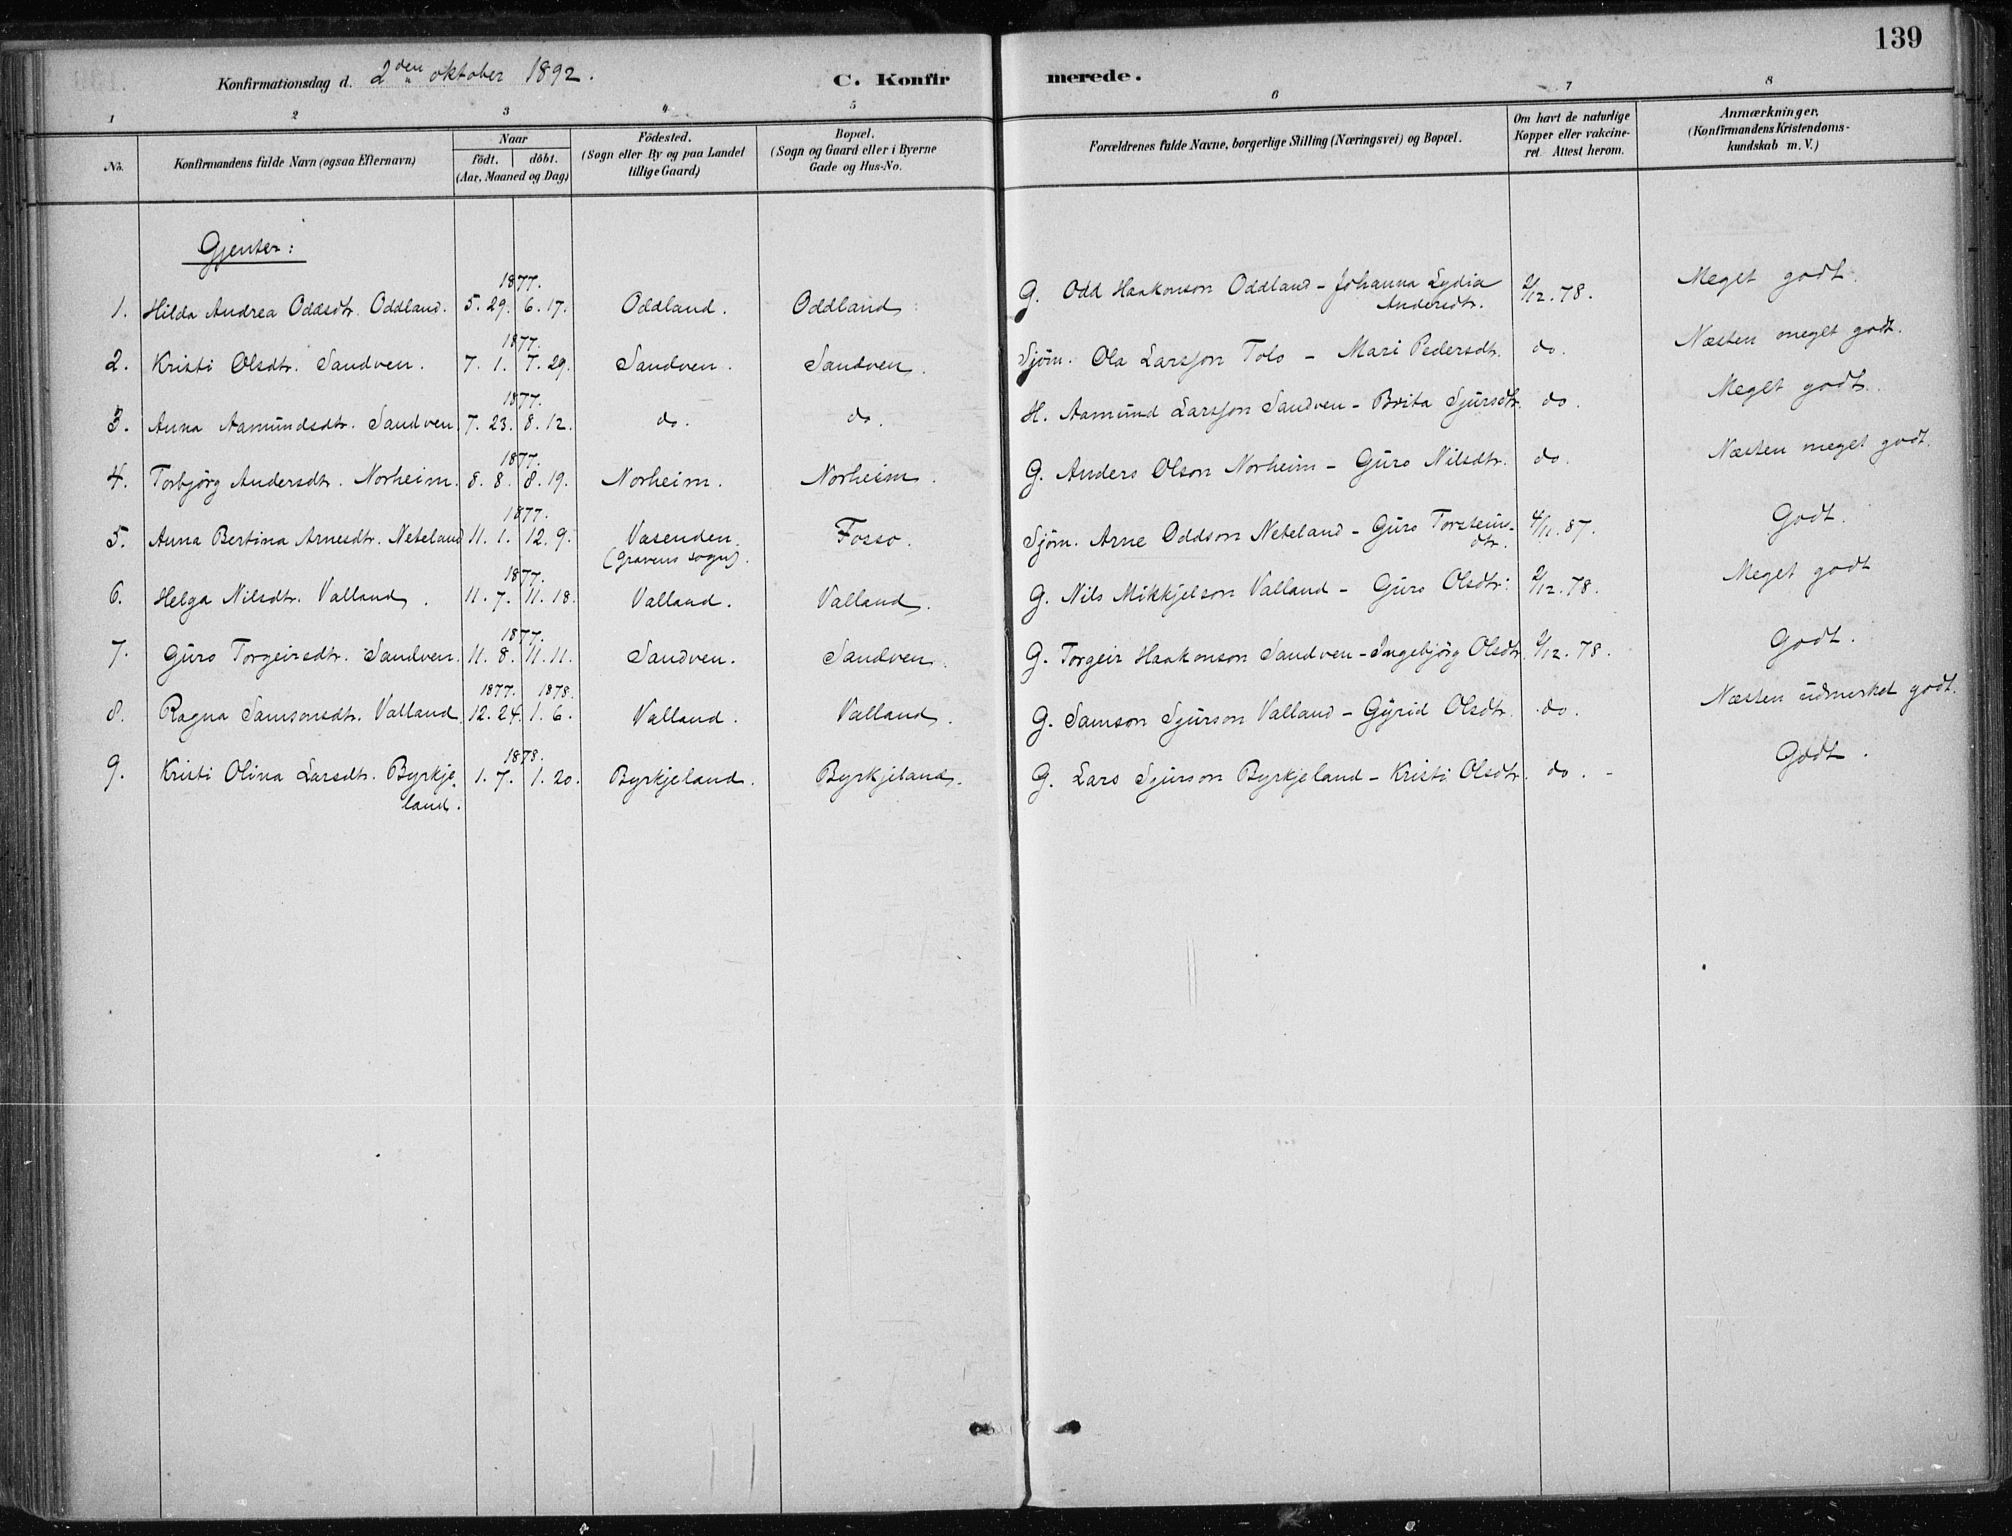 139
Konfirmationsdag d. 2den oktober 1892.
C. Konfirmerede.
1 2 3 4 5 6 7 8
No. Konfirmandens fulde Navn (ogsaa Efternavn) Naar födt. döbt. (Aar, Maaned og Dag) Födested. (Sogn eller By og paa Landet tillige Gaard) Bopæl. (Sogn og Gaard eller i Byerne Gade og Hus-No. Forældrenes fulde Navne, borgerlige Stilling (Næringsvei) og Bopæl. Om havt de naturlige Kopper eller vakcineret. Attest herom. Anmærkninger. (Konfirmandens Kristendomskundskab m. V.)
Gjenter:
1877.
1. Hilda Andrea Oddsdtr. Oddland. 5. 29. 6. 17. Oddland. Oddland. G. Odd Haakonson Oddland - Johanna Lydia Andersdtr. 2/12. 78. Meget godt.
1877.
2. Kristi Olsdtr. Sandven. 7. 1. 7. 29. Sandven. Sandven. Sjöm. Ola Larsson Tolo - Mari Pedersdtr. do. Næsten meget godt.
1877.
3. Anna Aamundsdtr. Sandven 7. 23. 8. 12. do. do. H. Aamund Larsson Sandven - Brita Sjursdtr. do. Meget godt.
1877.
4. Torbjörg Andersdtr. Norheim. 8. 8. 8. 19. Norheim. Norheim. G. Anders Olson Norheim - Guro Nilsdtr. do. Næsten meget godt.
1877.
5. Anna Bertina Arnesdtr. Neteland 11. 1. 12. 9. Vasenden (Gravens sogn). Fosso. Sjöm. Arne Oddson Neteland - Guro Torsteinsdtr. 4/11. 87. Godt.
1877.
6. Helga Nilsdtr. Valland. 11. 7. 11. 18. Valland. Valland. G. Nils Mikkjelson Valland - Guro Olsdtr. 2/12. 78. Meget godt
1877.
7. Guro Torgeirsdtr. Sandven. 11. 8. 11. 11. Sandven. Sandven. G. Torgeir Haakonson Sandven - Ingebjörg Olsdtr. 2/12. 78. Godt.
1877. 1878.
8. Ragna Samsonsdtr. Valland 12. 24. 1. 6. Valland. Valland. G. Samson Sjurson Valland - Gyrid Olsdtr. do. Næsten udmerket godt.
1878.
9. Kristi Olina Larsdtr. Byrkjeland. 1. 7. 1. 20. Byrkjeland. Byrkjeland. G. Lars Sjurson Byrkjeland - Kristi Olsdtr. do. - Godt.